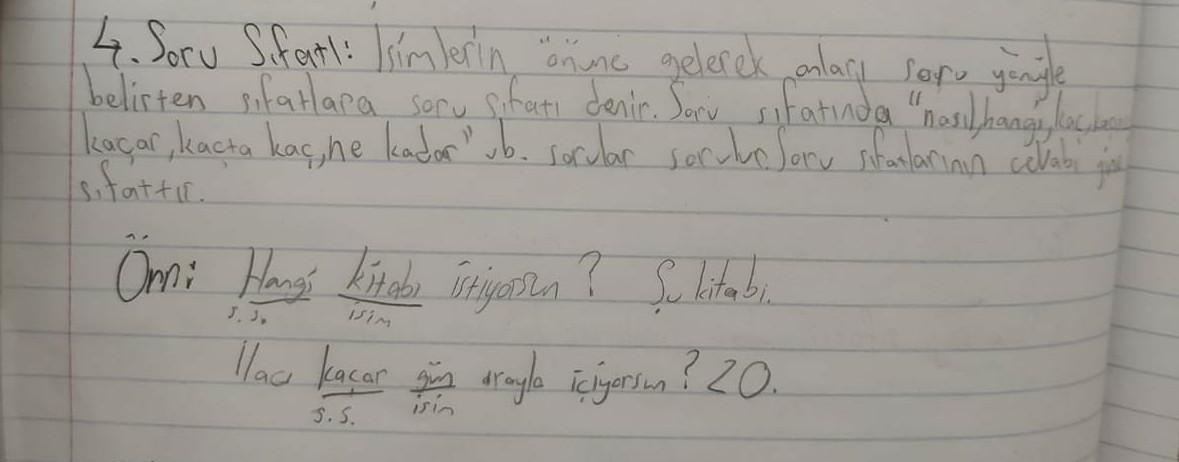 4. Soru Sıfatı: İsimlerin önüne gelerek onları soru yönüyle
belirten sıfatlara soru sıfatı denir. Soru sıfatında "nasıl, hangi, kaç,
kaçar, kaçta kaç, ne kadar" vb. sorular sorulur. Soru sıfatlarının cevabı yine
sıfattır.
Örn: Hangi kitabı istiyorsun? Şu kitabı.
s.s. isim
İlacı kaçar gün arayla içiyorsun? 20.
s.s. isim